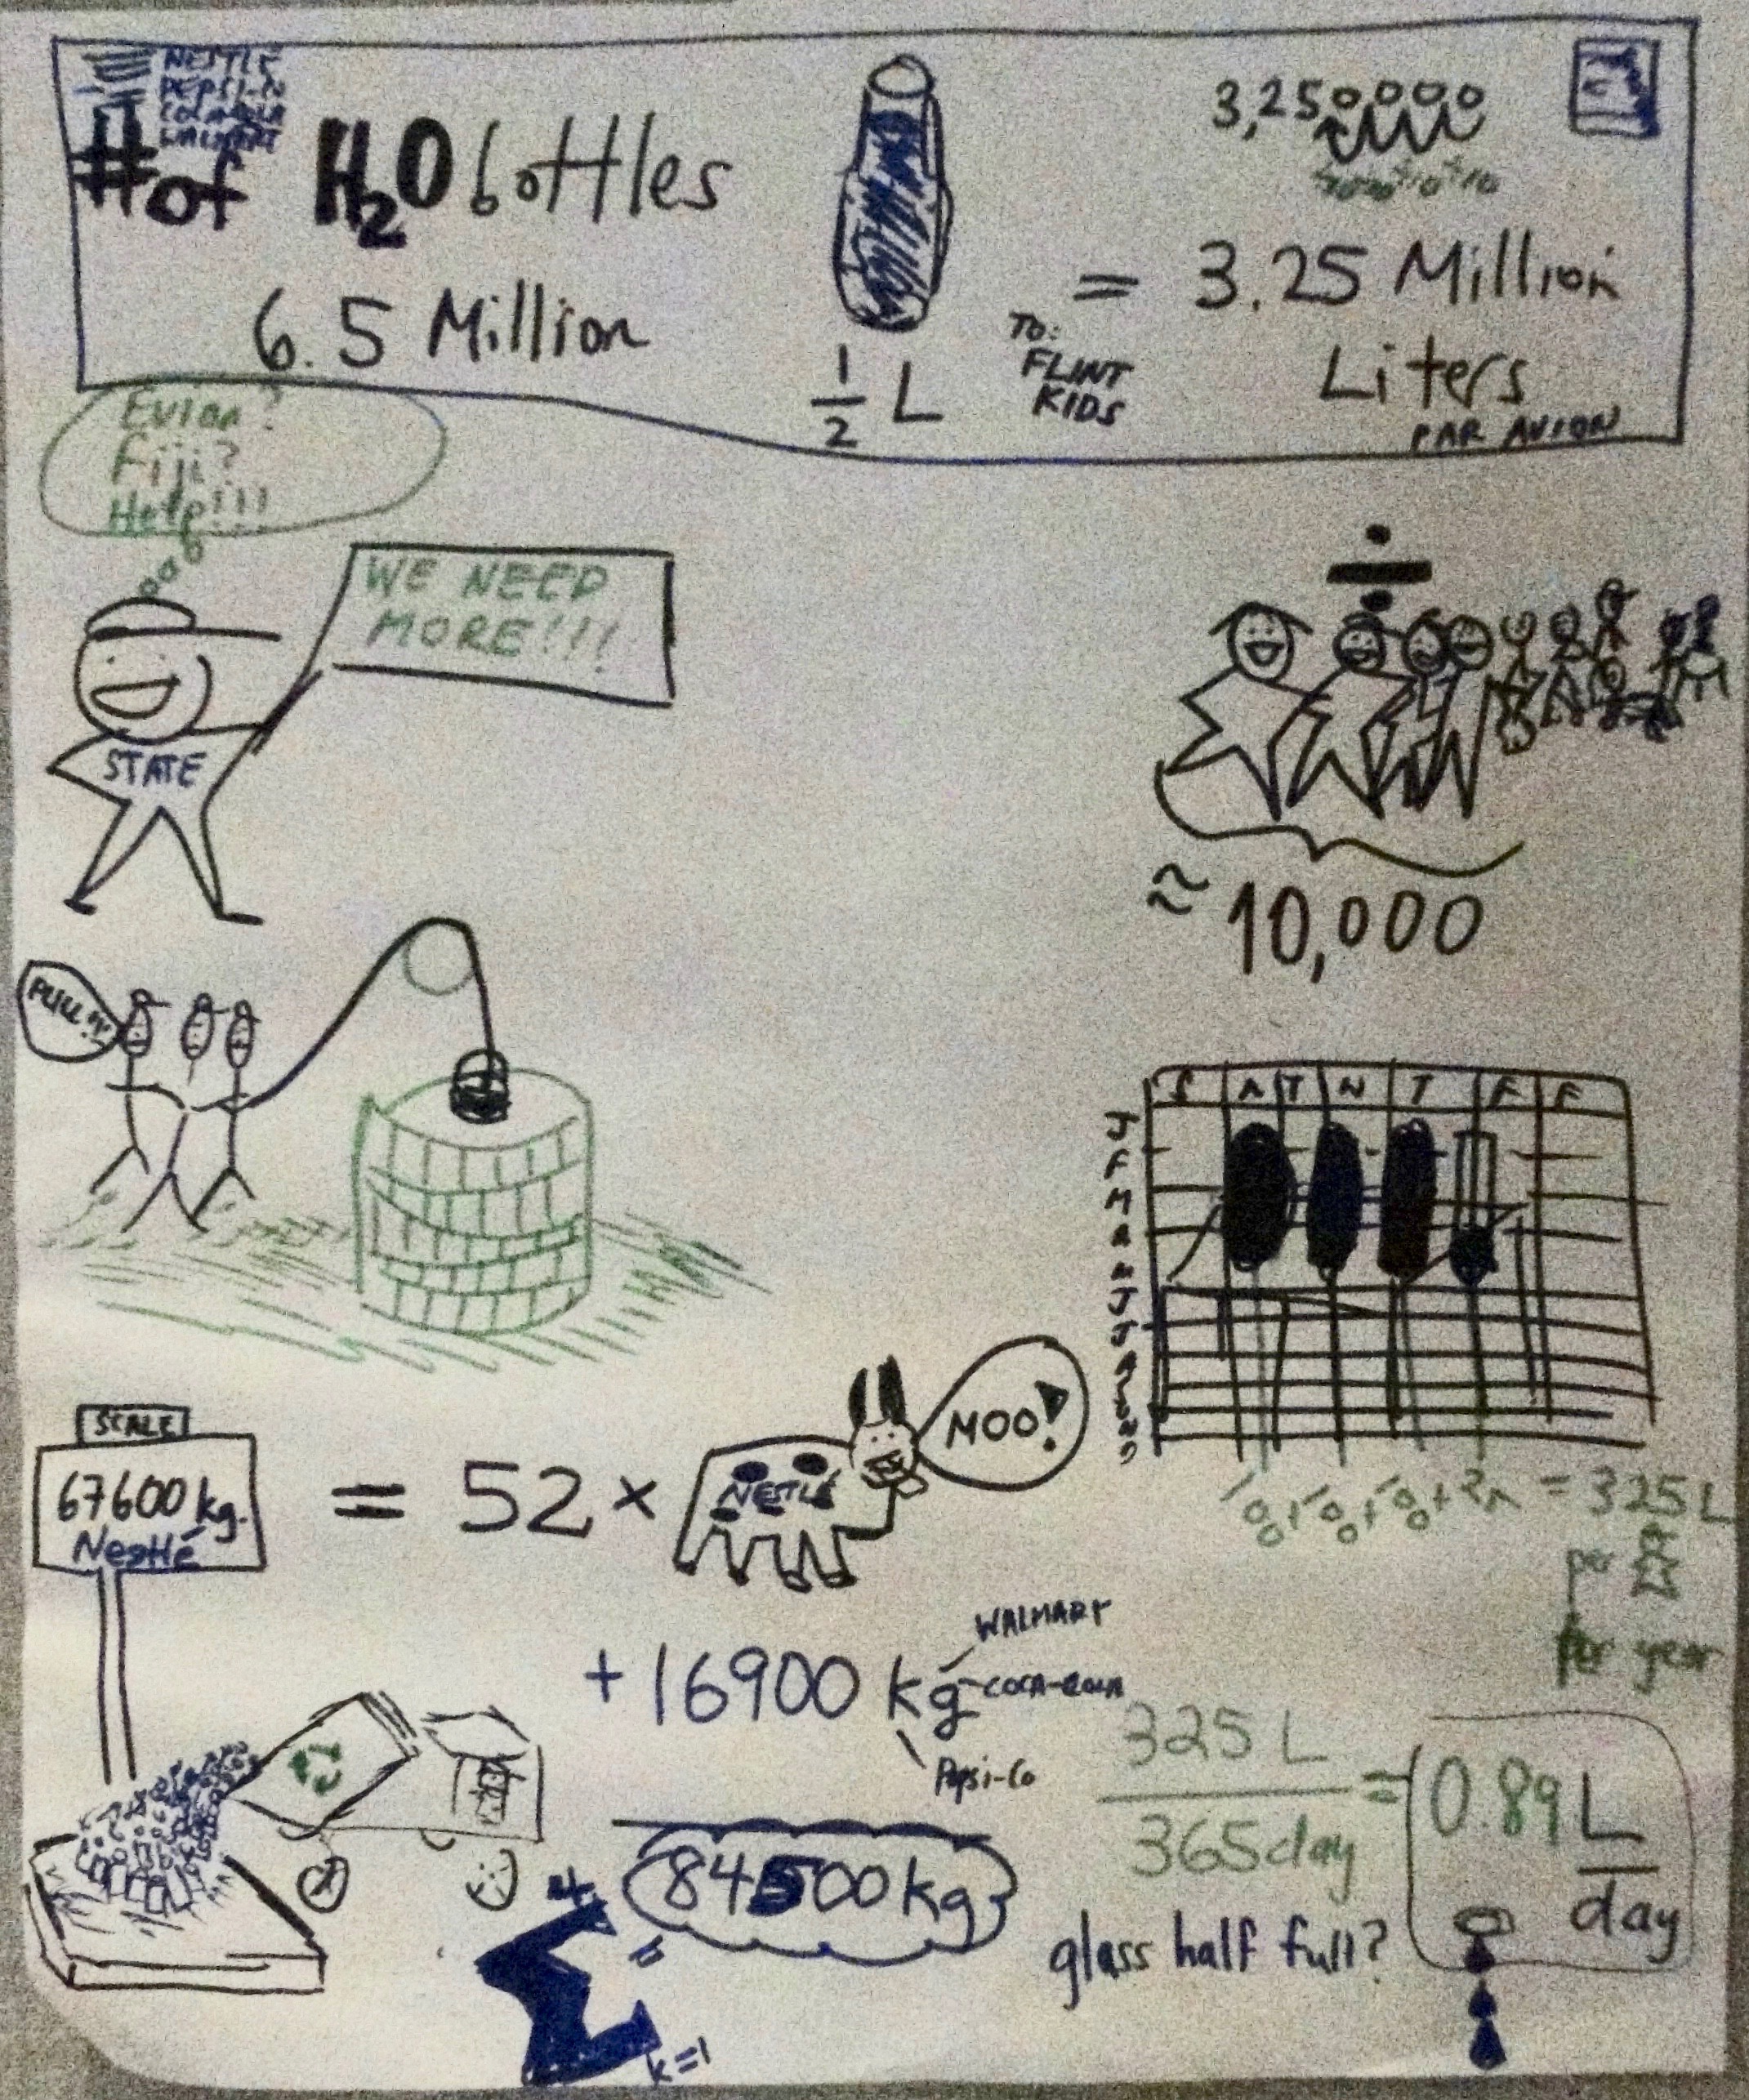 NESTLE
PEPSI-CO
COCA-COLA
WALMART
# of H2O bottles
6.5 Million
1/2 L
3,250000
= 3.25 Million
Liters
TO:
FLINT
KIDS
PAR AVION
Evian?
Fiji?
Help!!!
WE NEED
MORE!!!
STATE
÷
≈ 10,000
PULL!!!
J
F
M
A
SCALE
67600 kg.
Nestlé
= 52 ×
NESTLÉ
MOO!
= 325 L
per
Per year
+ 16900 kg
WALMART
COCA-COLA
Pepsi-Co
84500 kg
4
k=1
325 L
365 day
= 0.89 L
day
glass half full?